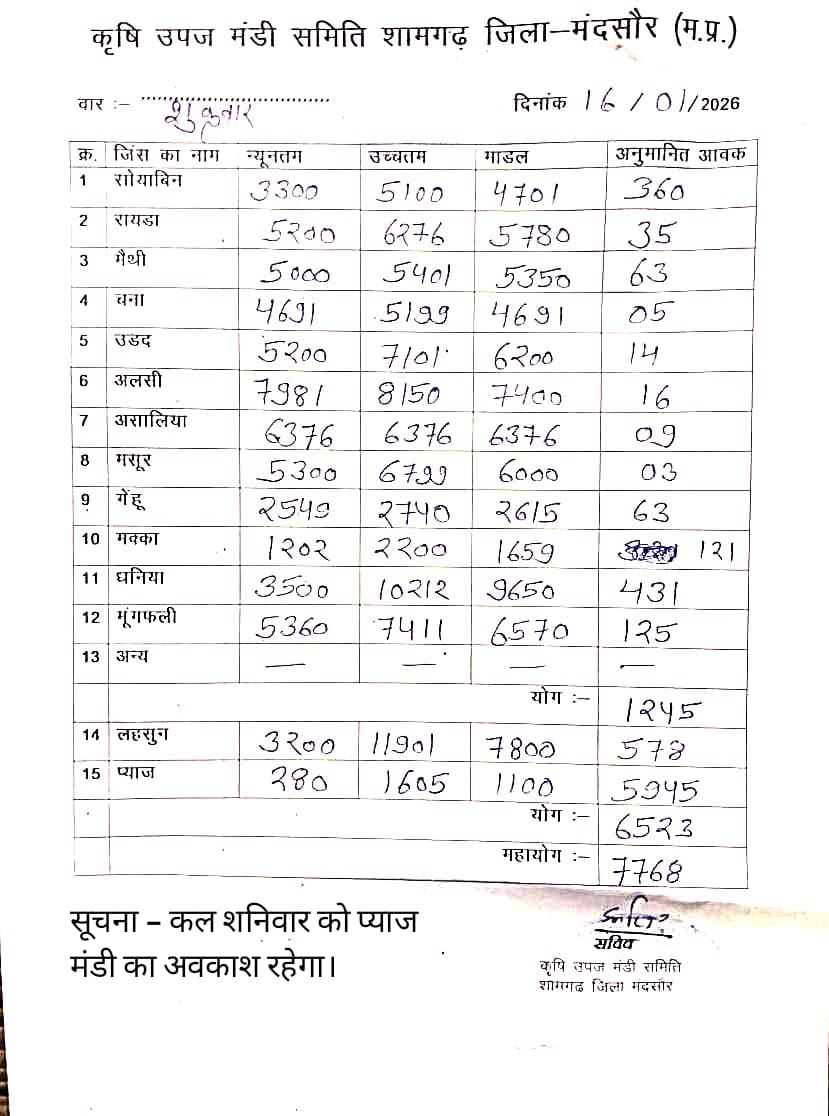 कृषि उपज मंडी समिति शामगढ़ जिला–मंदसौर (म.प्र.)
वार :– शुक्रवार दिनांक 16/01/2026
क्र. जिंस का नाम न्यूनतम उच्चतम माडल अनुमानित आवक
1 सोयाबिन 3300 5100 4701 360
2 रायडा 5200 6276 5780 35
3 मैथी 5000 5401 5350 63
4 चना 4691 5199 4691 05
5 उडद 5200 7101 6200 14
6 अलसी 7981 8150 7400 16
7 असालिया 6376 6376 6376 09
8 मसूर 5300 6799 6000 03
9 गेंहू 2549 2740 2615 63
10 मक्का 1202 2200 1659 121
11 धनिया 3500 10212 9650 431
12 मूंगफली 5360 7411 6570 125
13 अन्य — — — —
योग :– 1245
14 लहसुन 3200 11901 7800 578
15 प्याज 280 1605 1100 5945
योग :– 6523
महायोग :– 7768
सूचना – कल शनिवार को प्याज
मंडी का अवकाश रहेगा।
सचिव
कृषि उपज मंडी समिति
शामगढ जिला मंदसौर